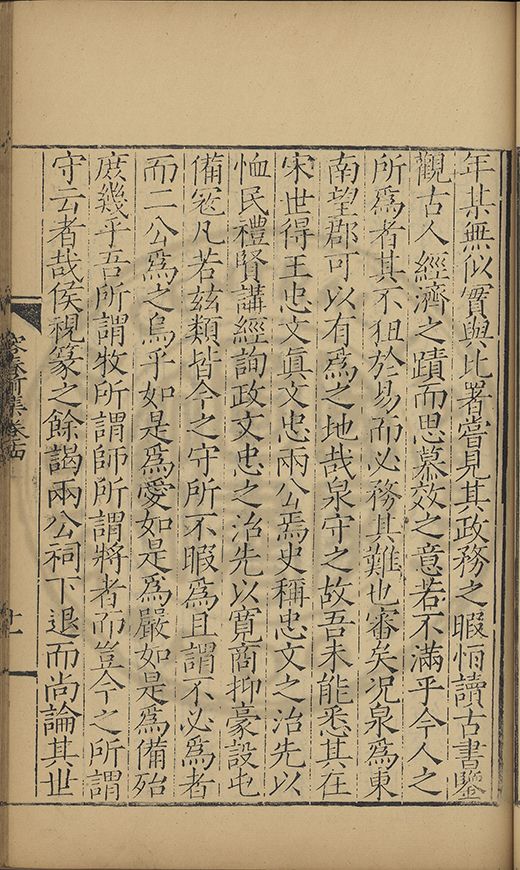 年某無似實與比署嘗見其政務之暇恒讀古書鑒
觀古人經濟之蹟而思慕效之意若不滿乎今人之
所爲者其不狃於易而必務其難也審矣况泉爲東
南望郡可以有爲之地哉泉守之故吾未能悉其在
宋世得王忠文真文忠兩公焉史稱忠文之治先以
恤民禮賢講經詢政文忠之治先以寛商抑豪設屯
備冦凡若兹類皆今之守所不暇爲且謂不必爲者
而二公爲之烏乎如是爲愛如是爲嚴如是爲備殆
庻幾乎吾所謂牧所謂師所謂將者而豈今之所謂
守云者哉侯視篆之餘謁兩公祠下退而尚論其世
容春前集卷十四
十一